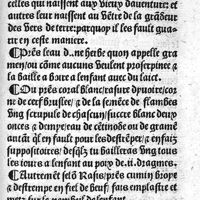 celles qui naissent aux vieux dauenture: et
autres leur naissent au vẽtre de la grãdeur
des vers de terre: parquoy il les fault guarir
en ceste maniere.
Pres leau d..ne herbe quon appelle gramen/
ou cõme aucuns veulent proserpine &
la baille a boire a lenfant auec du laict.
Ou pres coral blanc/ rasure dyuoire/ corne
de cerf bruslee/ & de la semẽce de flambes
vng scrupule de chascun/ succre blanc deux
onces/ & dempt/ eau de cẽtinode ou de gramẽ
autãt ql en fault pour les destrẽper/ & enfais
suppositoires/ desqlz tu bailleras vng tous
les iours a lenfant au poix de .ii. dragmes.
Autremẽt selõ Rasis/ pres cumin broye
& destrempe en fiel de beuf/ fais emplastre et
metz sur le nombril de lenfant